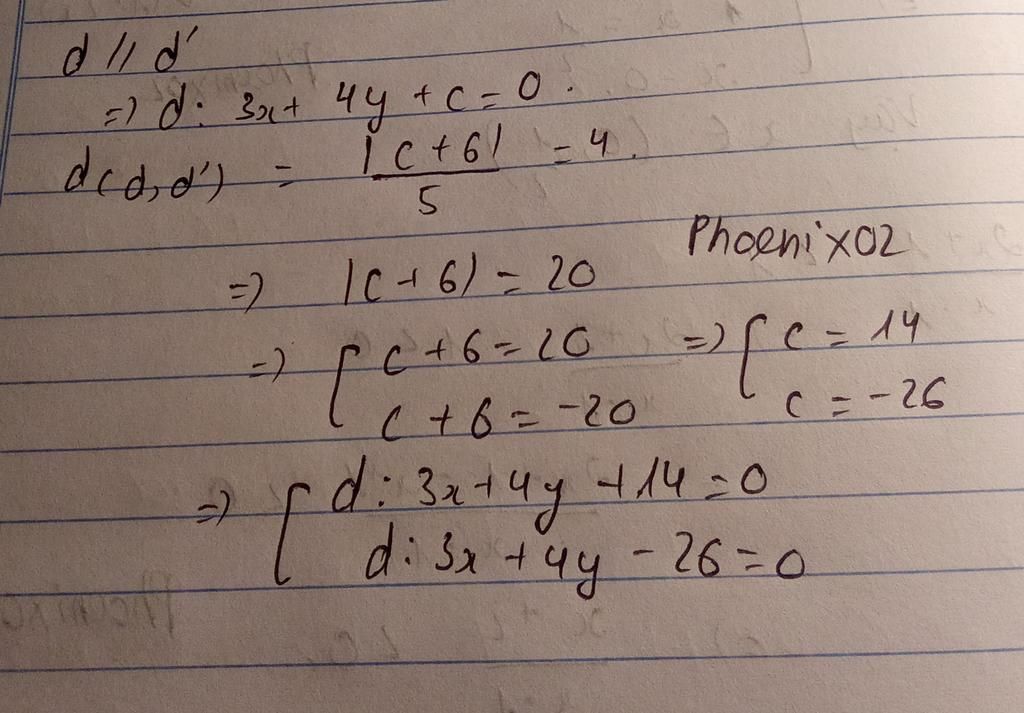 d // d'
=> d: 3x + 4y + c = 0.
d(d, d') = |c + 6| / 5 = 4.
Phoenix02
=> |c + 6| = 20
=> [ c + 6 = 20 => [ c = 14
c + 6 = -20 c = -26
=> [ d: 3x + 4y + 14 = 0
d: 3x + 4y - 26 = 0